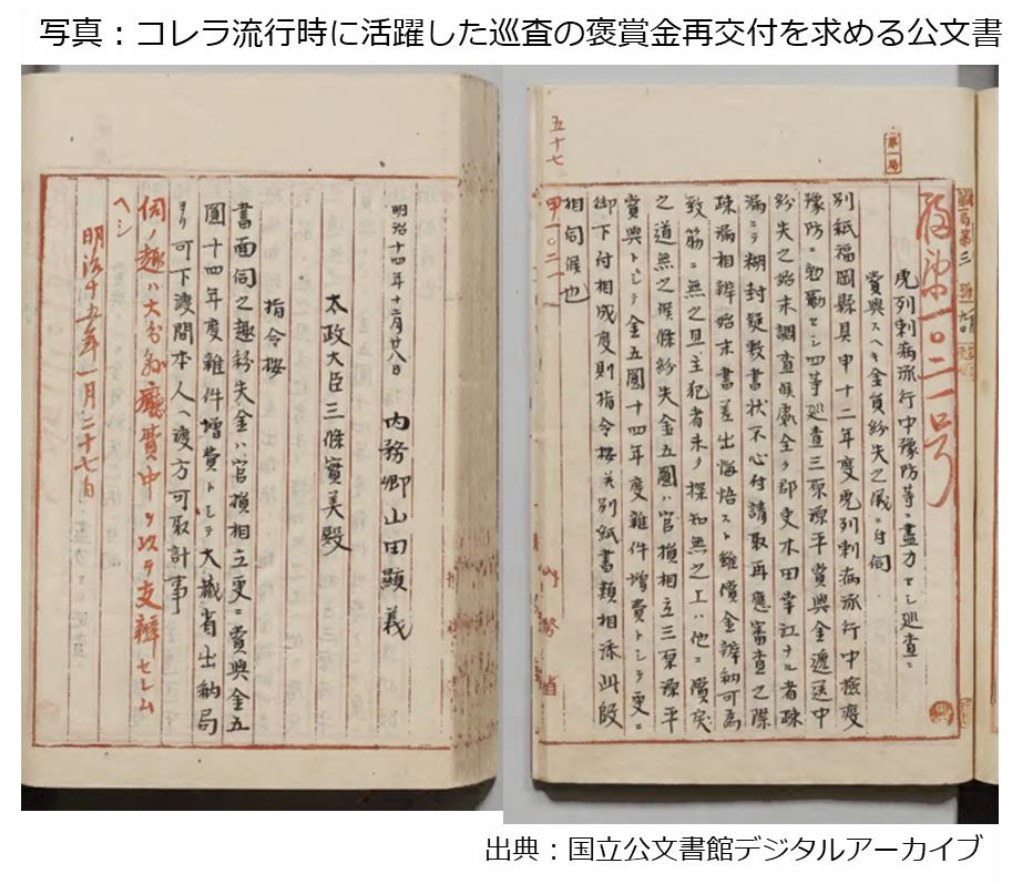 写真：コレラ流行時に活躍した巡査の褒賞金再交付を求める公文書
第一局
五十七
虎列剌病流行中豫防等ニ盡力セシ巡査ニ
賞與スヘキ金員紛失之儀ニ付伺
別紙福岡縣具申十二年度虎列剌病流行中檢疫
豫防ニ勉勵セシ四等巡査三原源平賞與金遞送中
紛失之始末調査候處全ク郡吏木田幸江ナル者疎
漏ニテ糊封疑敷書状不心付請取再應審査之際
疎漏相辨始末書差出悔悟スト雖償金辨納可爲
致筋ニ無之且主犯者未タ探知無之上ハ他ニ償戻
之道無之候條紛失金五圓ハ官損相立三原源平
賞與トシテ金五圓十四年度雜件増費トシテ更ニ
御下付相成度則指令按并別紙書類相添此段
相伺候也
甲一〇二一
明治十四年十二月廿八日 内務卿山田顯義
太政大臣三條實美殿
指令按
書面伺之趣紛失金ハ官損相立更ニ賞與金五
圓十四年度雜件増費トシテ大藏省出納局
ヨリ可下渡間本人ヘ渡方可取計事
伺ノ趣ハ大分縣廳費中ヲ以テ支辨セシム
ヘシ
明治十五年一月二十七日
出典：国立公文書館デジタルアーカイブ